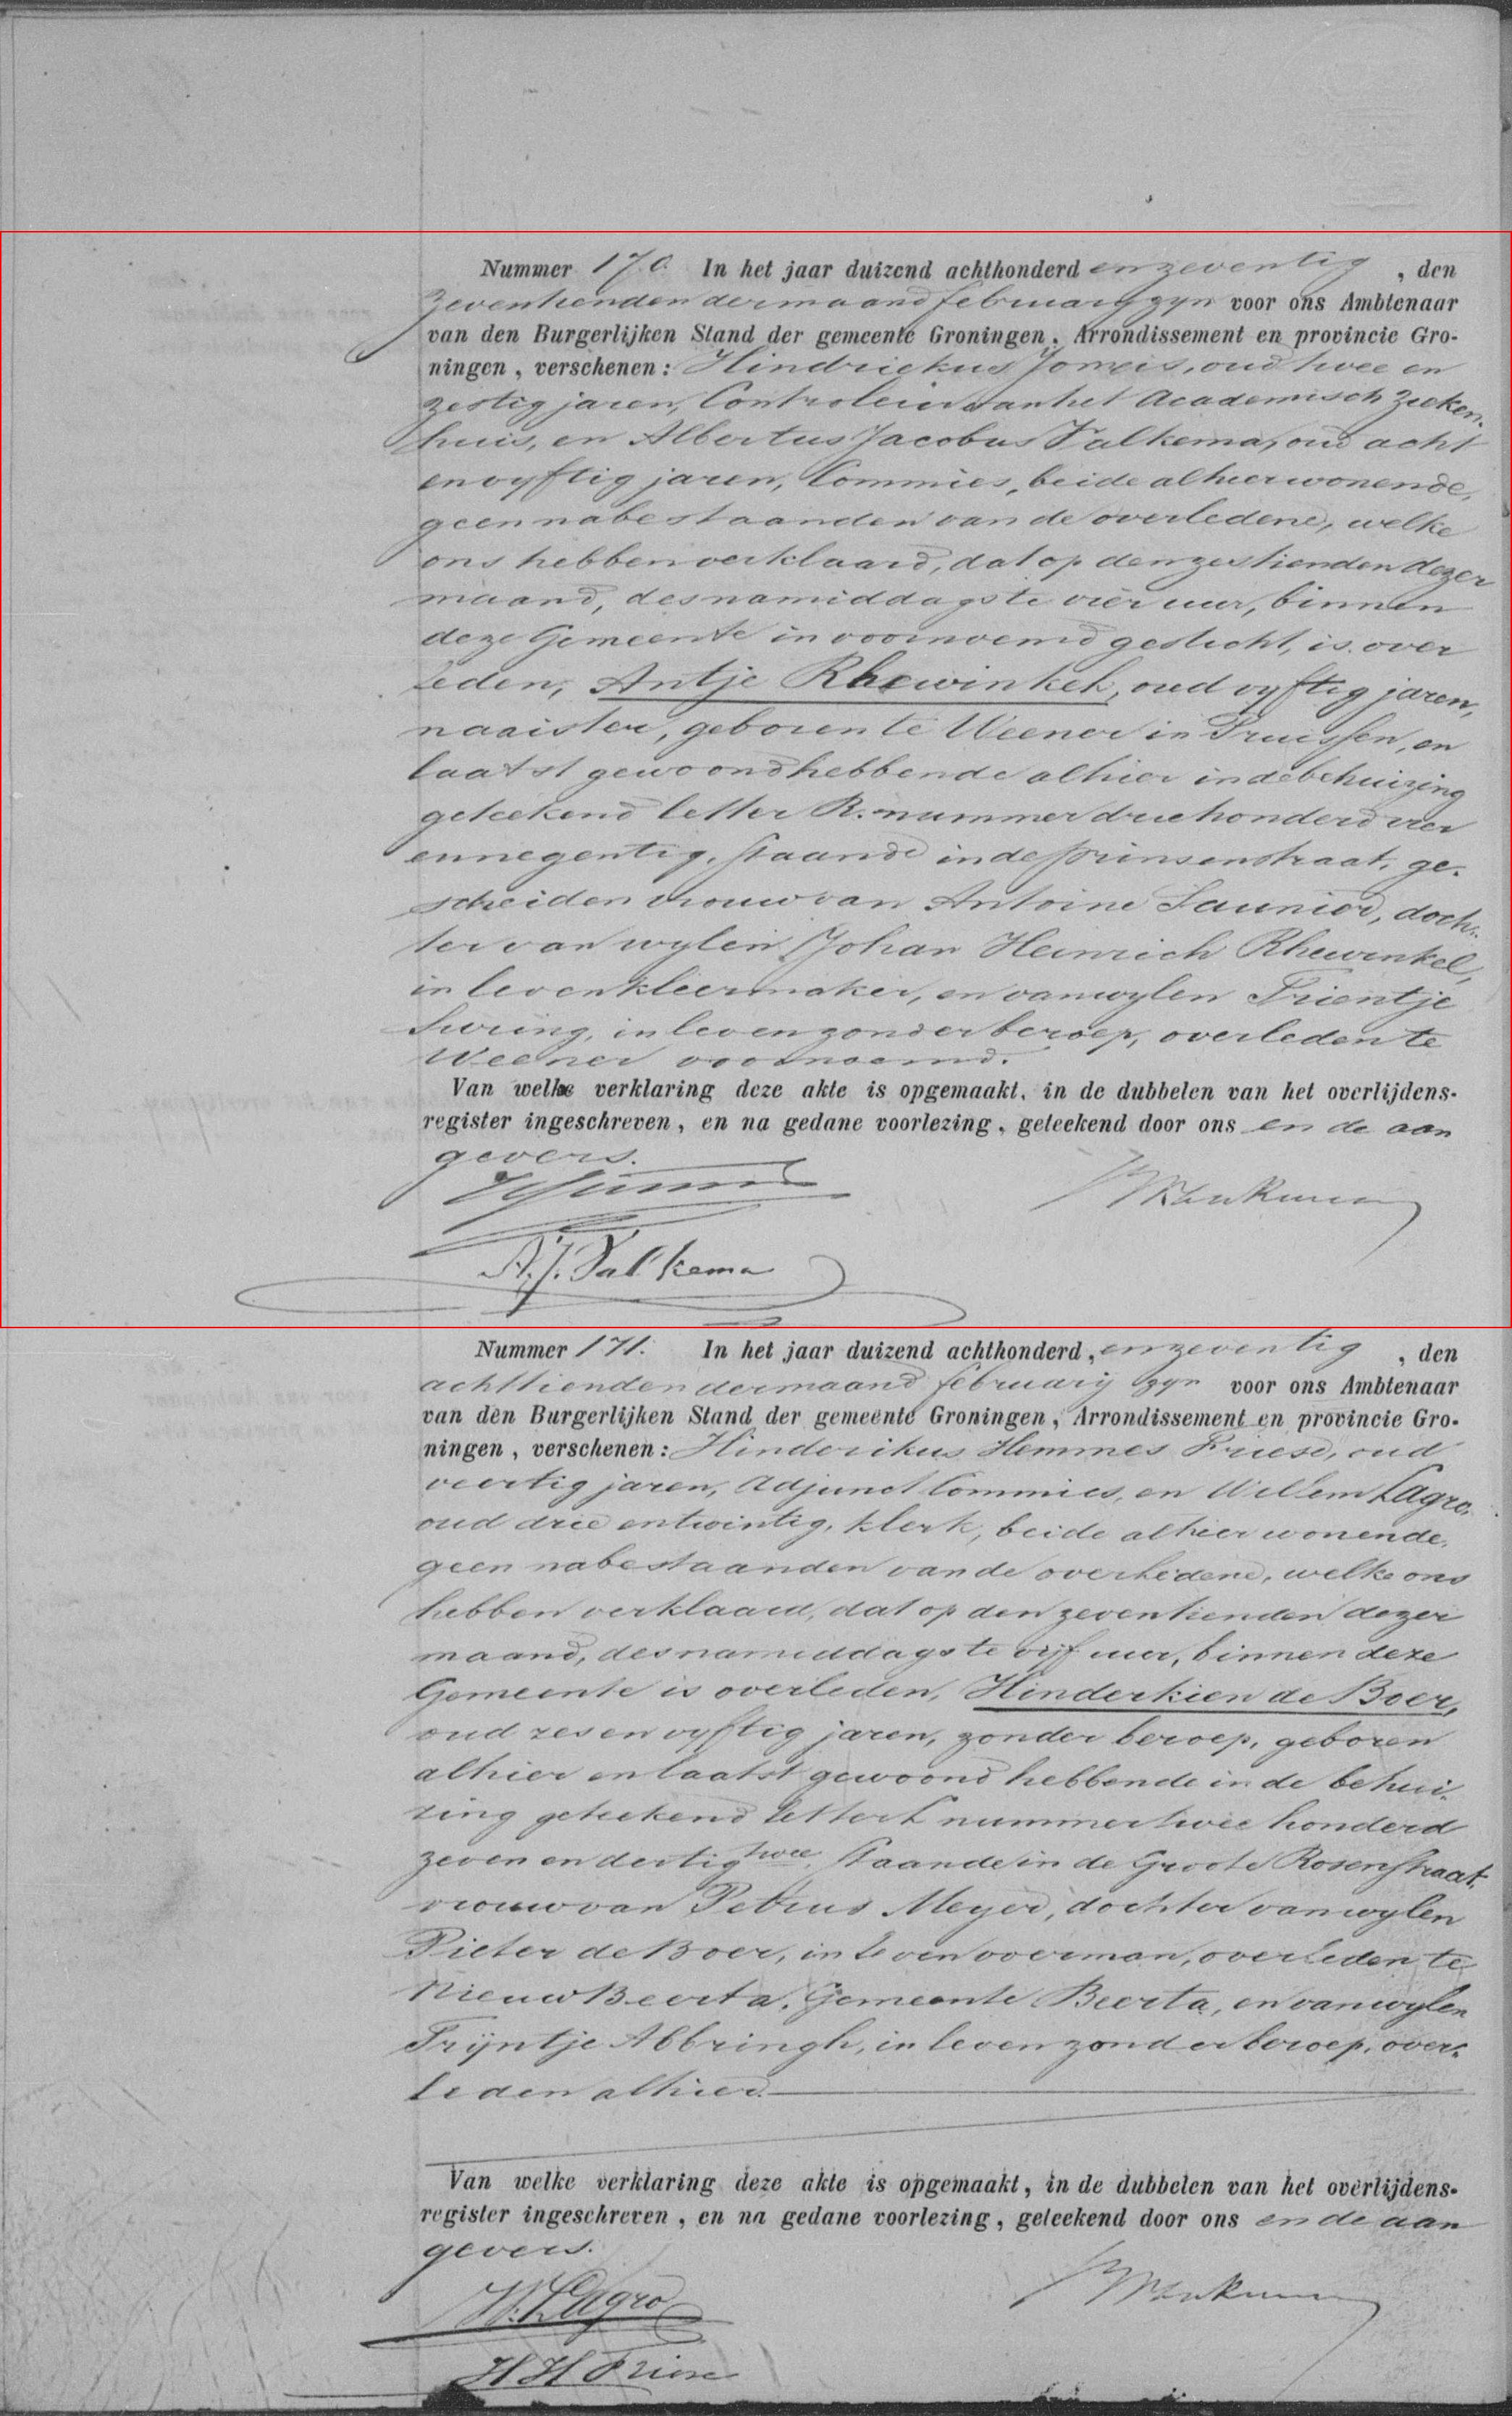 Nummer 170. In het jaar duizend achthonderd en zeventig, den
zeventienden der maand february zyn voor ons Ambtenaar
van den Burgerlijken Stand der gemeente Groningen, Arrondissement en provincie Gro-
ningen, verschenen: Hindrickus Jonneis, oud twee en
zestig jaren, Controleur aan het Academisch Zieken-
huis, en Albertus Jacobus Valkema, oud acht
en vyftig jaren, Commies, beide alhier wonende,
geen nabestaanden van de overledene, welke
ons hebben verklaard, dat op den zestienden dezer
maand, des namiddags te vier uur, binnen
deze Gemeente in voornoemd gesticht, is over
leden, Antje Rhewinkel, oud vyftig jaren,
naaister, geboren te Weener in Pruissen, en
laatst gewoond hebbende alhier in de behuizing
geteekend letter R. nummer driehonderd vier
en negentig, staande in de Prinsenstraat, ge-
scheiden vrouw van Antoine Saunier, doch-
ter van wylen Johan Heinrich Rhewinkel,
in leven kleermaker, en van wylen Trientje
Suring, in leven zonder beroep, overleden te
Weener voornoemd.
Van welke verklaring deze akte is opgemaakt, in de dubbelen van het overlijdens-
register ingeschreven, en na gedane voorlezing, geteekend door ons en de aan
gevers.
A. J. Valkema
Nummer 171. In het jaar duizend achthonderd, en zeventig, den
achttienden der maand february zyn voor ons Ambtenaar
van den Burgerlijken Stand der gemeente Groningen, Arrondissement en provincie Gro-
ningen, verschenen: Hinderikus Hemmes Friese, oud
veertig jaren, Adjunct Commies, en Willem Lagro,
oud drie en twintig, klerk, beide alhier wonende,
geen nabestaanden van de overledene, welke ons
hebben verklaard, dat op den zeventienden dezer
maand, des namiddags te vijf uur, binnen deze
Gemeente is overleden, Hinderkien de Boer,
oud zes en vyftig jaren, zonder beroep, geboren
alhier en laatst gewoond hebbende in de behui-
zing geteekend letter L nummer twee honderd
zeven en dertig twee, staande in de Groote Rosenstraat,
vrouw van Petrus Meyer, dochter van wylen
Pieter de Boer, in leven voerman, overleden te
Nieuw Beerta, Gemeente Beerta, en van wylen
Trijntje Abbringh, in leven zonder beroep, over-
leden alhier.
Van welke verklaring deze akte is opgemaakt, in de dubbelen van het overlijdens-
register ingeschreven, en na gedane voorlezing, geteekend door ons en de aan
gevers.
W. Lagro
H H Friese